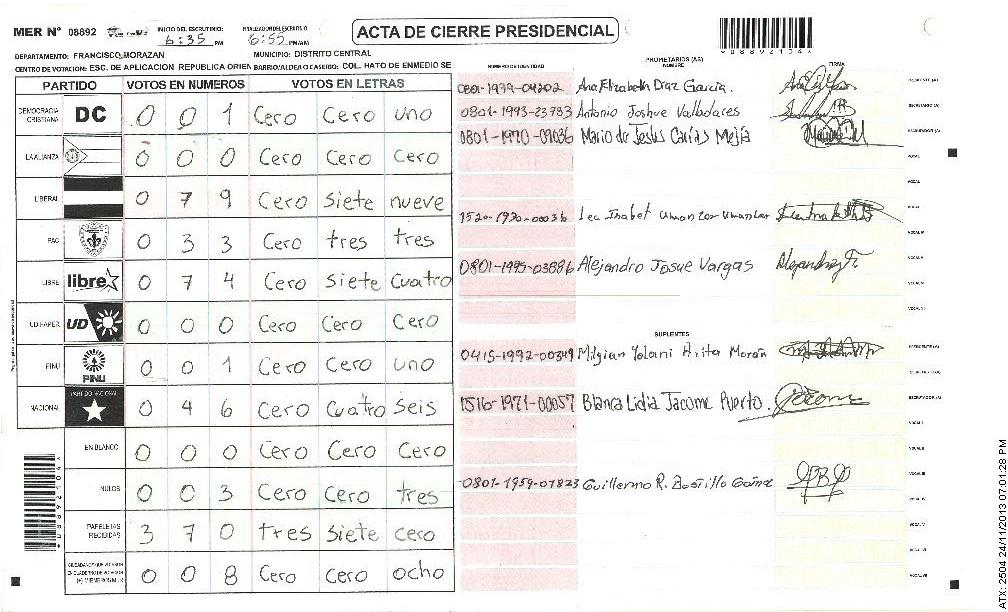 MER Nº 08892 INICIO DEL ESCRUTINIO: 6:35 PM FINALIZACION DEL ESCRUTINIO 6:55 PM/AM ACTA DE CIERRE PRESIDENCIAL
DEPARTAMENTO: FRANCISCO MORAZAN MUNICIPIO: DISTRITO CENTRAL
CENTRO DE VOTACION: ESC. DE APLICACION REPUBLICA ORIEN BARRIO/ALDEA O CASERIO: COL. HATO DE ENMEDIO SE
PARTIDO VOTOS EN NUMEROS VOTOS EN LETRAS
DEMOCRACIA CRISTIANA DC 0 0 1 Cero Cero uno
LA ALIANZA 0 0 0 Cero Cero Cero
LIBERAL 0 7 9 Cero Siete nueve
PAC 0 3 3 Cero tres tres
LIBRE libre 0 7 4 Cero Siete Cuatro
UD-FAPER UD 0 0 0 Cero Cero Cero
PINU PINU 0 0 1 Cero Cero uno
NACIONAL PARTIDO NACIONAL 0 4 6 Cero Cuatro Seis
EN BLANCO 0 0 0 Cero Cero Cero
NULOS 0 0 3 Cero Cero tres
PAPELETAS RECIBIDAS 3 7 0 tres siete cero
0 0 8 Cero Cero ocho
NUMERO DE IDENTIDAD PROPIETARIOS (AS) NOMBRE FIRMA
0801-1979-04202 Ana Elizabeth Diaz Garcia.
0801-1993-23783 Antonio Joshue Valladares
0801-1970-09036 Mario de Jesus Carias Mejía
1520-1970-00036
0801-1995-03886 Alejandro Josue Vargas
SUPLENTES
0415-1992-00349 Milgian Yolani Arita Morán
1516-1971-00057 Blanca Lidia Jacome Puerto.
0801-1959-01823 Guillermo R. Bostillo Gómez
*08892104*
ATX: 2504 24/11/2013 07:01:28 PM